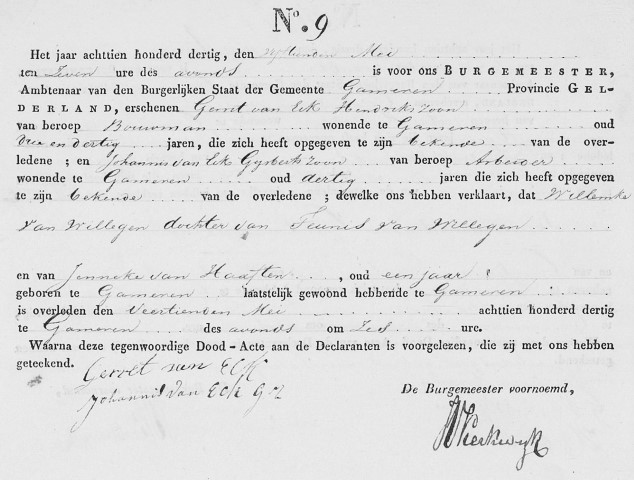 No. 9
Het jaar achttien honderd dertig, den vijftienden Mei
ten Zeven ure des avonds is voor ons BURGEMEESTER,
Ambtenaar van den Burgerlijken Staat der Gemeente Gameren Provincie GEL-
DERLAND, erschenen Gerrit van Eck Hendrikszoon
van beroep Bouwman wonende te Gameren oud
Vier en dertig jaren, die zich heeft opgegeven te zijn bekende van de over-
ledene; en Johannis van Eck Gysbertzoon van beroep Arbeider
wonende te Gameren oud dertig jaren die zich heeft opgegeven
te zijn bekende van de overledene; dewelke ons hebben verklaart, dat Willemke
van Willegen dochter van Teunis van Willegen
en van Jenneke van Haaften, oud een jaar
geboren te Gameren laatstelijk gewoond hebbende te Gameren
is overleden den Veertienden Mei achttien honderd dertig
te Gameren des avonds om Zes ure.
Waarna deze tegenwoordige Dood-Acte aan de Declaranten is voorgelezen, die zij met ons hebben
geteekend.
Gerret van Eck
Johannis van Eck Gz
De Burgemeester voornoemd,
Kerkwyk